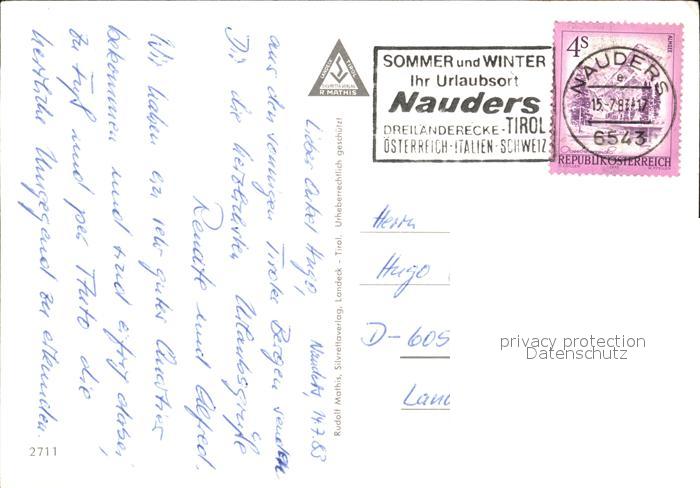 Nauders, 14.7.83
Lieber Onkel Hugo,
aus den sonnigen Tiroler Bergen senden
Dir die herzlichsten Urlaubsgrüße
Renate und Alfred.
Wir haben ein sehr gutes Quartier
bekommen und sind eifrig dabei,
zu Fuß und per Auto die
herrliche Umgegend zu erkunden.
2711
LANDECK TIROL
SILVRETTA VERLAG
R. MATHIS
Rudolf Mathis, Silvrettaverlag, Landeck - Tirol. Urheberrechtlich geschützt!
SOMMER und WINTER
Ihr Urlaubsort
Nauders
DREILÄNDERECKE-TIROL
ÖSTERREICH-ITALIEN-SCHWEIZ
4S
ALMSEE
REPUBLIK ÖSTERREICH
NAUDERS
e
15.-7.83-17
6543
Herrn
Hugo
D-605
Lan
privacy protection
Datenschutz